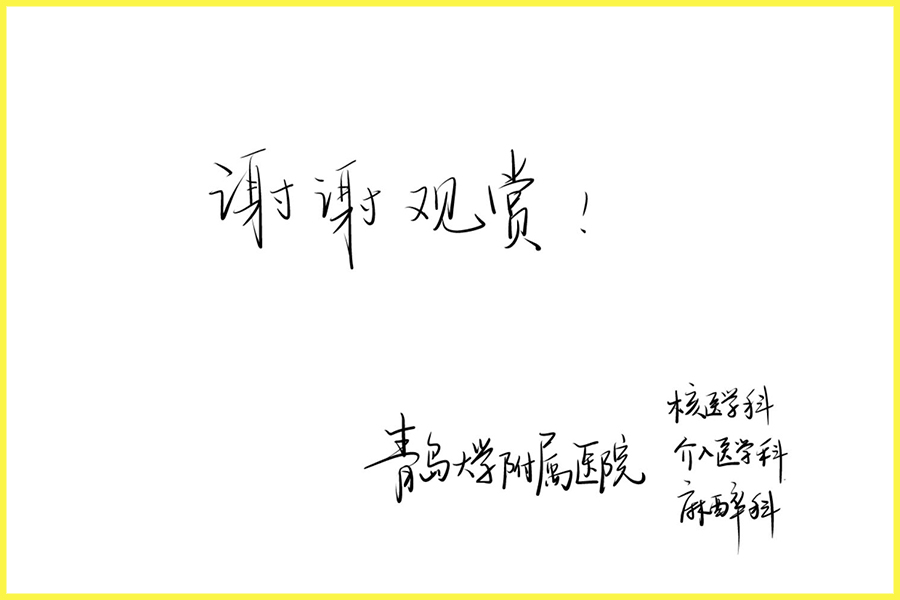 谢谢观赏!
青岛大学附属医院
核医学科
介入医学科
麻醉科